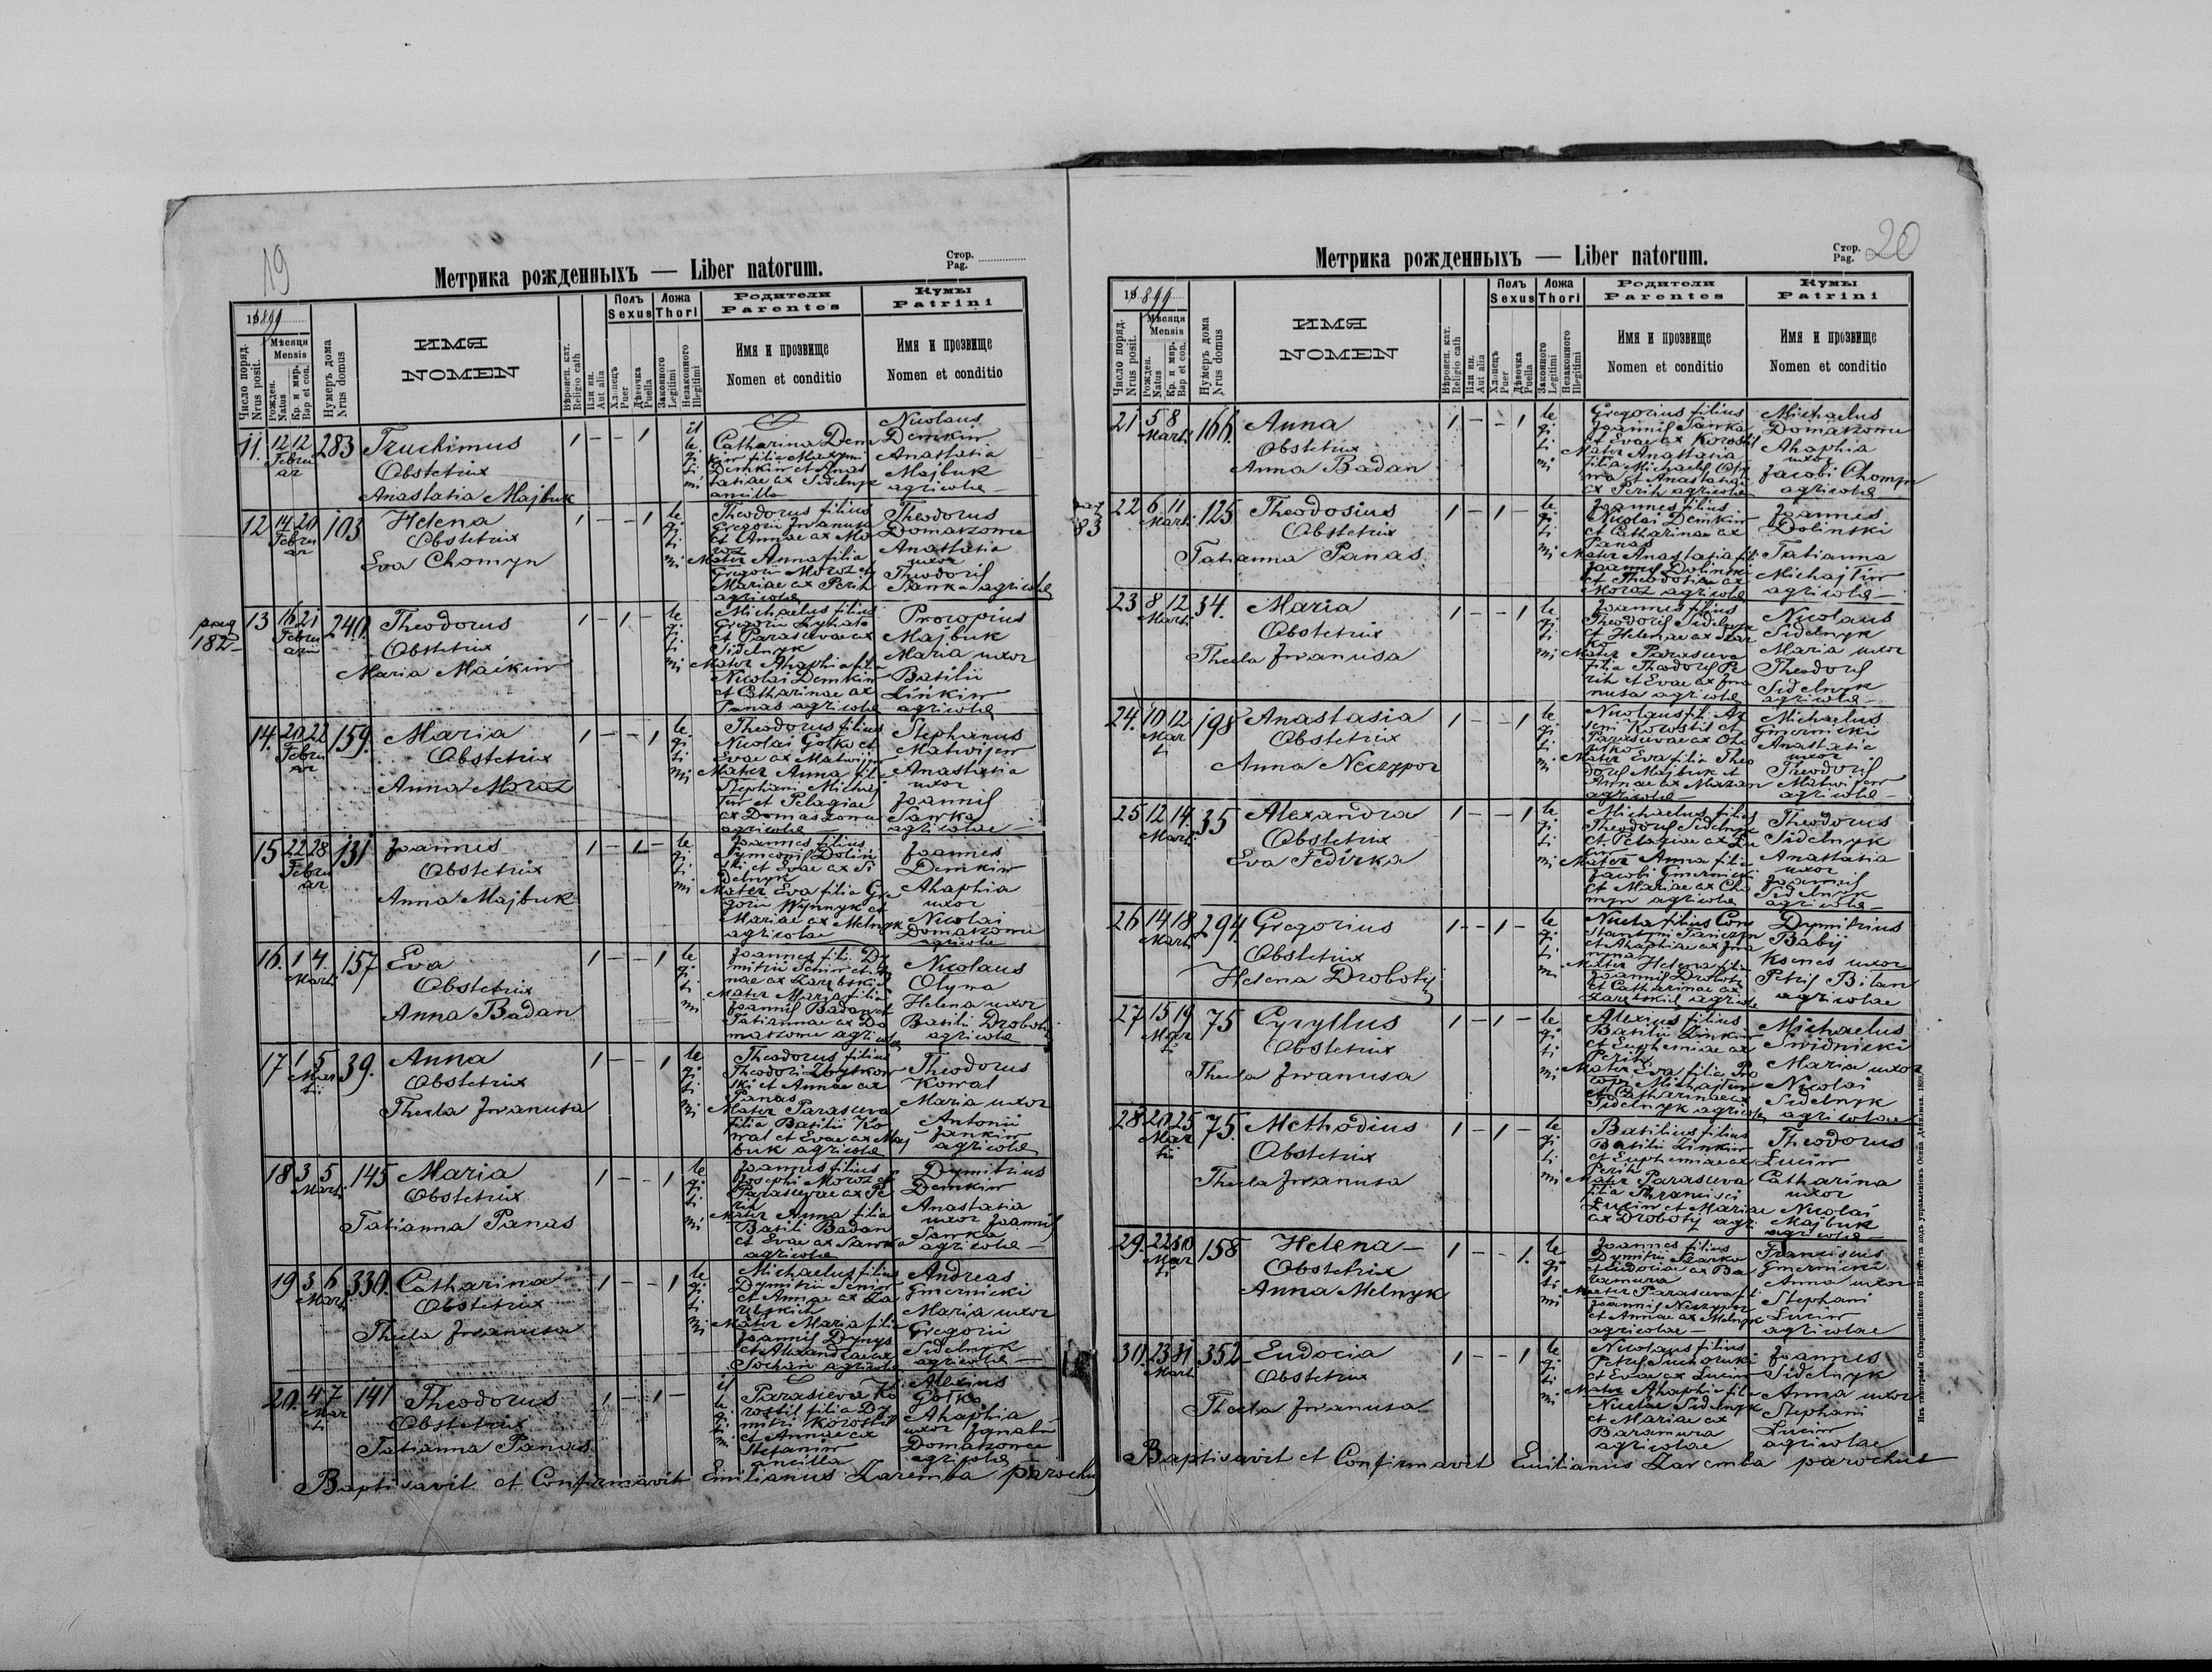 19
Метрика рожденныхъ — Liber natorum.
Стор.
Pag.
1899
Число поряд.
Nrus posit.
Мѣсяця
Mensis
Рожден.
Natus
Кр. и мѵр.
Bap et con.
Нумеръ дома
Nrus domus
ИМЯ
NOMEN
Вѣроисп. кат.
Religio cath
Или ин.
Aut alia
Полъ
Sexus
Хлопець
Puer
Дѣвочка
Puella
Ложа
Thori
Законного
Legitimi
Незаконного
Illegitimi
Родители
Parentes
Имя и прозвище
Nomen et conditio
Кумы
Patrini
Имя и прозвище
Nomen et conditio
11. 12 12 Febru ar 283
Obstetrix
Anastasia Majbuk
1 - - 1
il le gi ti mi
Catharina Dem
kiw filia Maxymi
Demkiw et Anas
tasiae ex Sidelnyk
ancilla
Nicolaus
Demkiw
Anastasia
Majbuk
agricolae
12 14 20 Febru ar 103
Helena
Obstetrix
Eva Chomyn
1 - - 1
le gi ti mi
Theodorus filius
Gregorii Iwanusa
et Annae ex Mo
roz
Mater Anna filia
Gregorii Moroz et
Mariae ex Perih
agricolae
Theodorus
Domaszowa
Anastasia
uxor
Theodori
Sawka agricolae
pag
182
13 16 21 Febru arii 240.
Theodorus
Obstetrix
Maria
1 - 1 -
le gi ti mi
Michaelus filius
Gregorii
et Parascevae ex
Sidelnyk
Mater Ahaphia filia
Nicolai Demkiw
et Catharinae ex
Panas agricolae
Procopius
Majbuk
Maria uxor
Basilii
Zinkiw
agricolae
14. 20 22 Febru ar 159.
Maria
Obstetrix
Anna Moroz
1 - - 1
le gi ti mi
Theodorus filius
Nicolai Gotko et
Evae ex Matwijow
Mater Anna fil.
Stephani Michaj
low et Pelagiae
ex Domaszowa
agricolae
Stephanus
Matwijow
Anastasia
uxor
Joannis
Sawka
agricolae
15 22 28 Febru ar 131
Joannes
Obstetrix
Anna Majbuk
1 - 1 -
le gi ti mi
Joannes filius
Symeonis Dolin
ski et Evae ex Si
delnyk
Mater Eva filia Gre
gorii Wynnyk et
Mariae ex Melnyk
agricolae
Joannes
Demkiw
Ahaphia
uxor
Nicolai
Domaszowa
agricolae
16. 1 4. Marti 157
Eva
Obstetrix
Anna Badan
1 - - 1
le gi ti mi
Joannes fil. Dy
mitrii Seniw et An
nae ex Zarębski
Mater Maria filia
Joannis Badan et
Tatiannae ex Do
maszowa agricolae
Nicolaus
Olyna
Helena uxor
Basilii Drobotij
agricolae
17 1 5 Mar tii 39.
Anna
Obstetrix
Thecla Iwanusa
1 - - 1
le gi ti mi
Theodorus filius
Theodori Zbytkow
ski et Annae ex
Panas
Mater Parasceva
filia Basilii Ko
wal et Evae ex Maj
buk agricolae
Theodorus
Kowal
Maria uxor
Antonii
agricolae
18 3 5 Marti 145
Maria
Obstetrix
Tatianna Panas
1 - - 1
le gi ti mi
Joannes filius
Josephi Moroz et
Parascevae ex Pe
rih
Mater Anna filia
Basilii Badan
et Evae ex Sawka
agricolae
Dymitrius
Demkiw
Anastasia
uxor Joannis
Sawka
agricolae
19 3 6 Marti 330.
Catharina
Obstetrix
Thecla Iwanusa
1 - - 1
le gi ti mi
Michaelus filius
Dymitrii Seniw
et Annae ex Za
rębskich
Mater Maria filia
Joannis Dynys
et Alexandrae ex
Sochan agricolae
Andreas
Gmernicki
Maria uxor
Gregorii
Sidelnyk
agricolae
20. 4 7 Mar ti 141
Theodorus
Obstetrix
Tatianna Panas
1 - 1 -
il le gi ti mi
Parasceva Ko
rostil filia Dy
mitri Korostil
et Annae ex
Stefaniw
ancilla
Alexius
Gotko
Ahaphia
uxor Ignatii
Domaszowa
agricolae
Baptisavit et Confirmavit Emilianus Zaremba parochus
20
Метрика рожденныхъ — Liber natorum.
Стор.
Pag.
1899
Число поряд.
Nrus posit.
Мѣсяця
Mensis
Рожден.
Natus
Кр. и мѵр.
Bap et con.
Нумеръ дома
Nrus domus
ИМЯ
NOMEN
Вѣроисп. кат.
Religio cath
Или ин.
Aut alia
Полъ
Sexus
Хлопець
Puer
Дѣвочка
Puella
Ложа
Thori
Законного
Legitimi
Незаконного
Illegitimi
Родители
Parentes
Имя и прозвище
Nomen et conditio
Кумы
Patrini
Имя и прозвище
Nomen et conditio
21 5 8 Marti 166.
Anna
Obstetrix
Anna Badan
1 - - 1
le gi ti mi
Gregorius filius
Joannis Sawka
et Evae ex Korostil
Mater Anastasia
filia Michaeli Oly
na et Anastasiae
ex Perih agricolae
Michaelus
Domaszowa
Ahaphia
uxor
Jacobi Chomyn
agricolae
83
22 6 11 Marti 125
Theodosius
Obstetrix
Tatianna Panas
1 - 1 -
le gi ti mi
Joannes filius
Nicolai Demkiw
et Catharinae ex
Panas
Mater Anastasia fil.
Joannis Dolinski
et Theodosiae ex
Moroz agricolae
Joannes
Dolinski
Tatianna
Michajliw
agricolae
23 8 12 Marti 34.
Maria
Obstetrix
Thecla Iwanusa
1 - - 1
le gi ti mi
Joannes filius
Theodori Sidelnyk
et Helenae ex Szar
ko
Mater Parasceva
filia Theodori Pe
rih et Evae ex Iwa
nusa agricolae
Nicolaus
Sidelnyk
Maria uxor
Theodori
Sidelnyk
agricolae
24. 10 12 Mar ti 198
Anastasia
Obstetrix
Anna Neczypor
1 - - 1
le gi ti mi
Nicolaus fil. Ar
seni Korostil et
Parascevae ex
Mater Eva filia Theo
dori Majbuk et
Annae ex Mazan
agricolae
Michaelus
Gmernicki
Anastasia
uxor
Theodori
Matwijow
agricolae
25 12 14. Marti 35
Alexandra
Obstetrix
Eva Fedirka
1 - - 1
le gi ti mi
Michaelus filius
Theodori Sidelnyk
et Pelagiae ex Lu
ciw
Mater Anna filia
Jacobi Gmernicki
et Mariae ex Cho
myn agricolae
Theodorus
Sidelnyk
Anastasia
uxor
Joannis
Sidelnyk
agricolae
26 14 18 Marti 294.
Gregorius
Obstetrix
Helena Drobotij
1 - 1 -
le gi ti mi
Niceta filius Con
stantyni
et Ahaphiae ex
Mater Helena filia
Joannis Drobotij
et Catharinae ex
Zarębskich agricolae
Dymitrius
Babij
Ksenes uxor
Petri Bilan
agricolae
27 15 19 Mar ti 75
Cyryllus
Obstetrix
Thecla Iwanusa
1 - 1 -
le gi ti mi
Alexius filius
Basilii Zinkiw
et Euphemiae ex
Perih
Mater Eva filia Pro
copi Michajliw
et Catharinae ex
Sidelnyk agricolae
Michaelus
Swidnicki
Maria uxor
Nicolai
Sidelnyk
agricolae
28 20 25 Mar tii 75.
Methodius
Obstetrix
Thecla Iwanusa
1 - 1 -
le gi ti mi
Basilius filius
Basilii Zinkiw
et Euphemiae ex
Perih
Mater Parasceva
filia Francisci
Luciw et Mariae
ex Drobotij agr.
Theodorus
Luciw
Catharina
uxor
Nicolai
Majbuk
agricolae
29. 22 30 Mar ti 158
Helena
Obstetrix
Anna Melnyk
1 - - 1.
le gi ti mi
Joannes filius
Dymitrii Szarko
et Eudociae ex Ba
ramura
Mater Parasceva fil
Joannis Neczypor
et Annae ex Melnyk
agricolae
Franciscus
Gmernicki
Anna uxor
Stephani
Luciw
agricolae
30. 23 31 Mart 352
Eudocia
Obstetrix
Thecla Iwanusa
1 - - 1
le gi ti mi
Nicolaus filius
Petri Suchowski
et Evae ex Luciw
Mater Ahaphia filia
Nicolae Sidelnyk
et Mariae ex
Baramura
agricolae
Joannes
Sidelnyk
Anna uxor
Stephani
Luciw
agricolae
Baptisavit et Confirmavit Emilianus Zaremba parochus